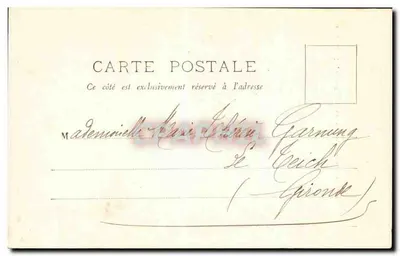 CARTE POSTALE
Ce côté est exclusivement réservé à l'adresse
Mademoiselle Marie
Le Teich
(Gironde)